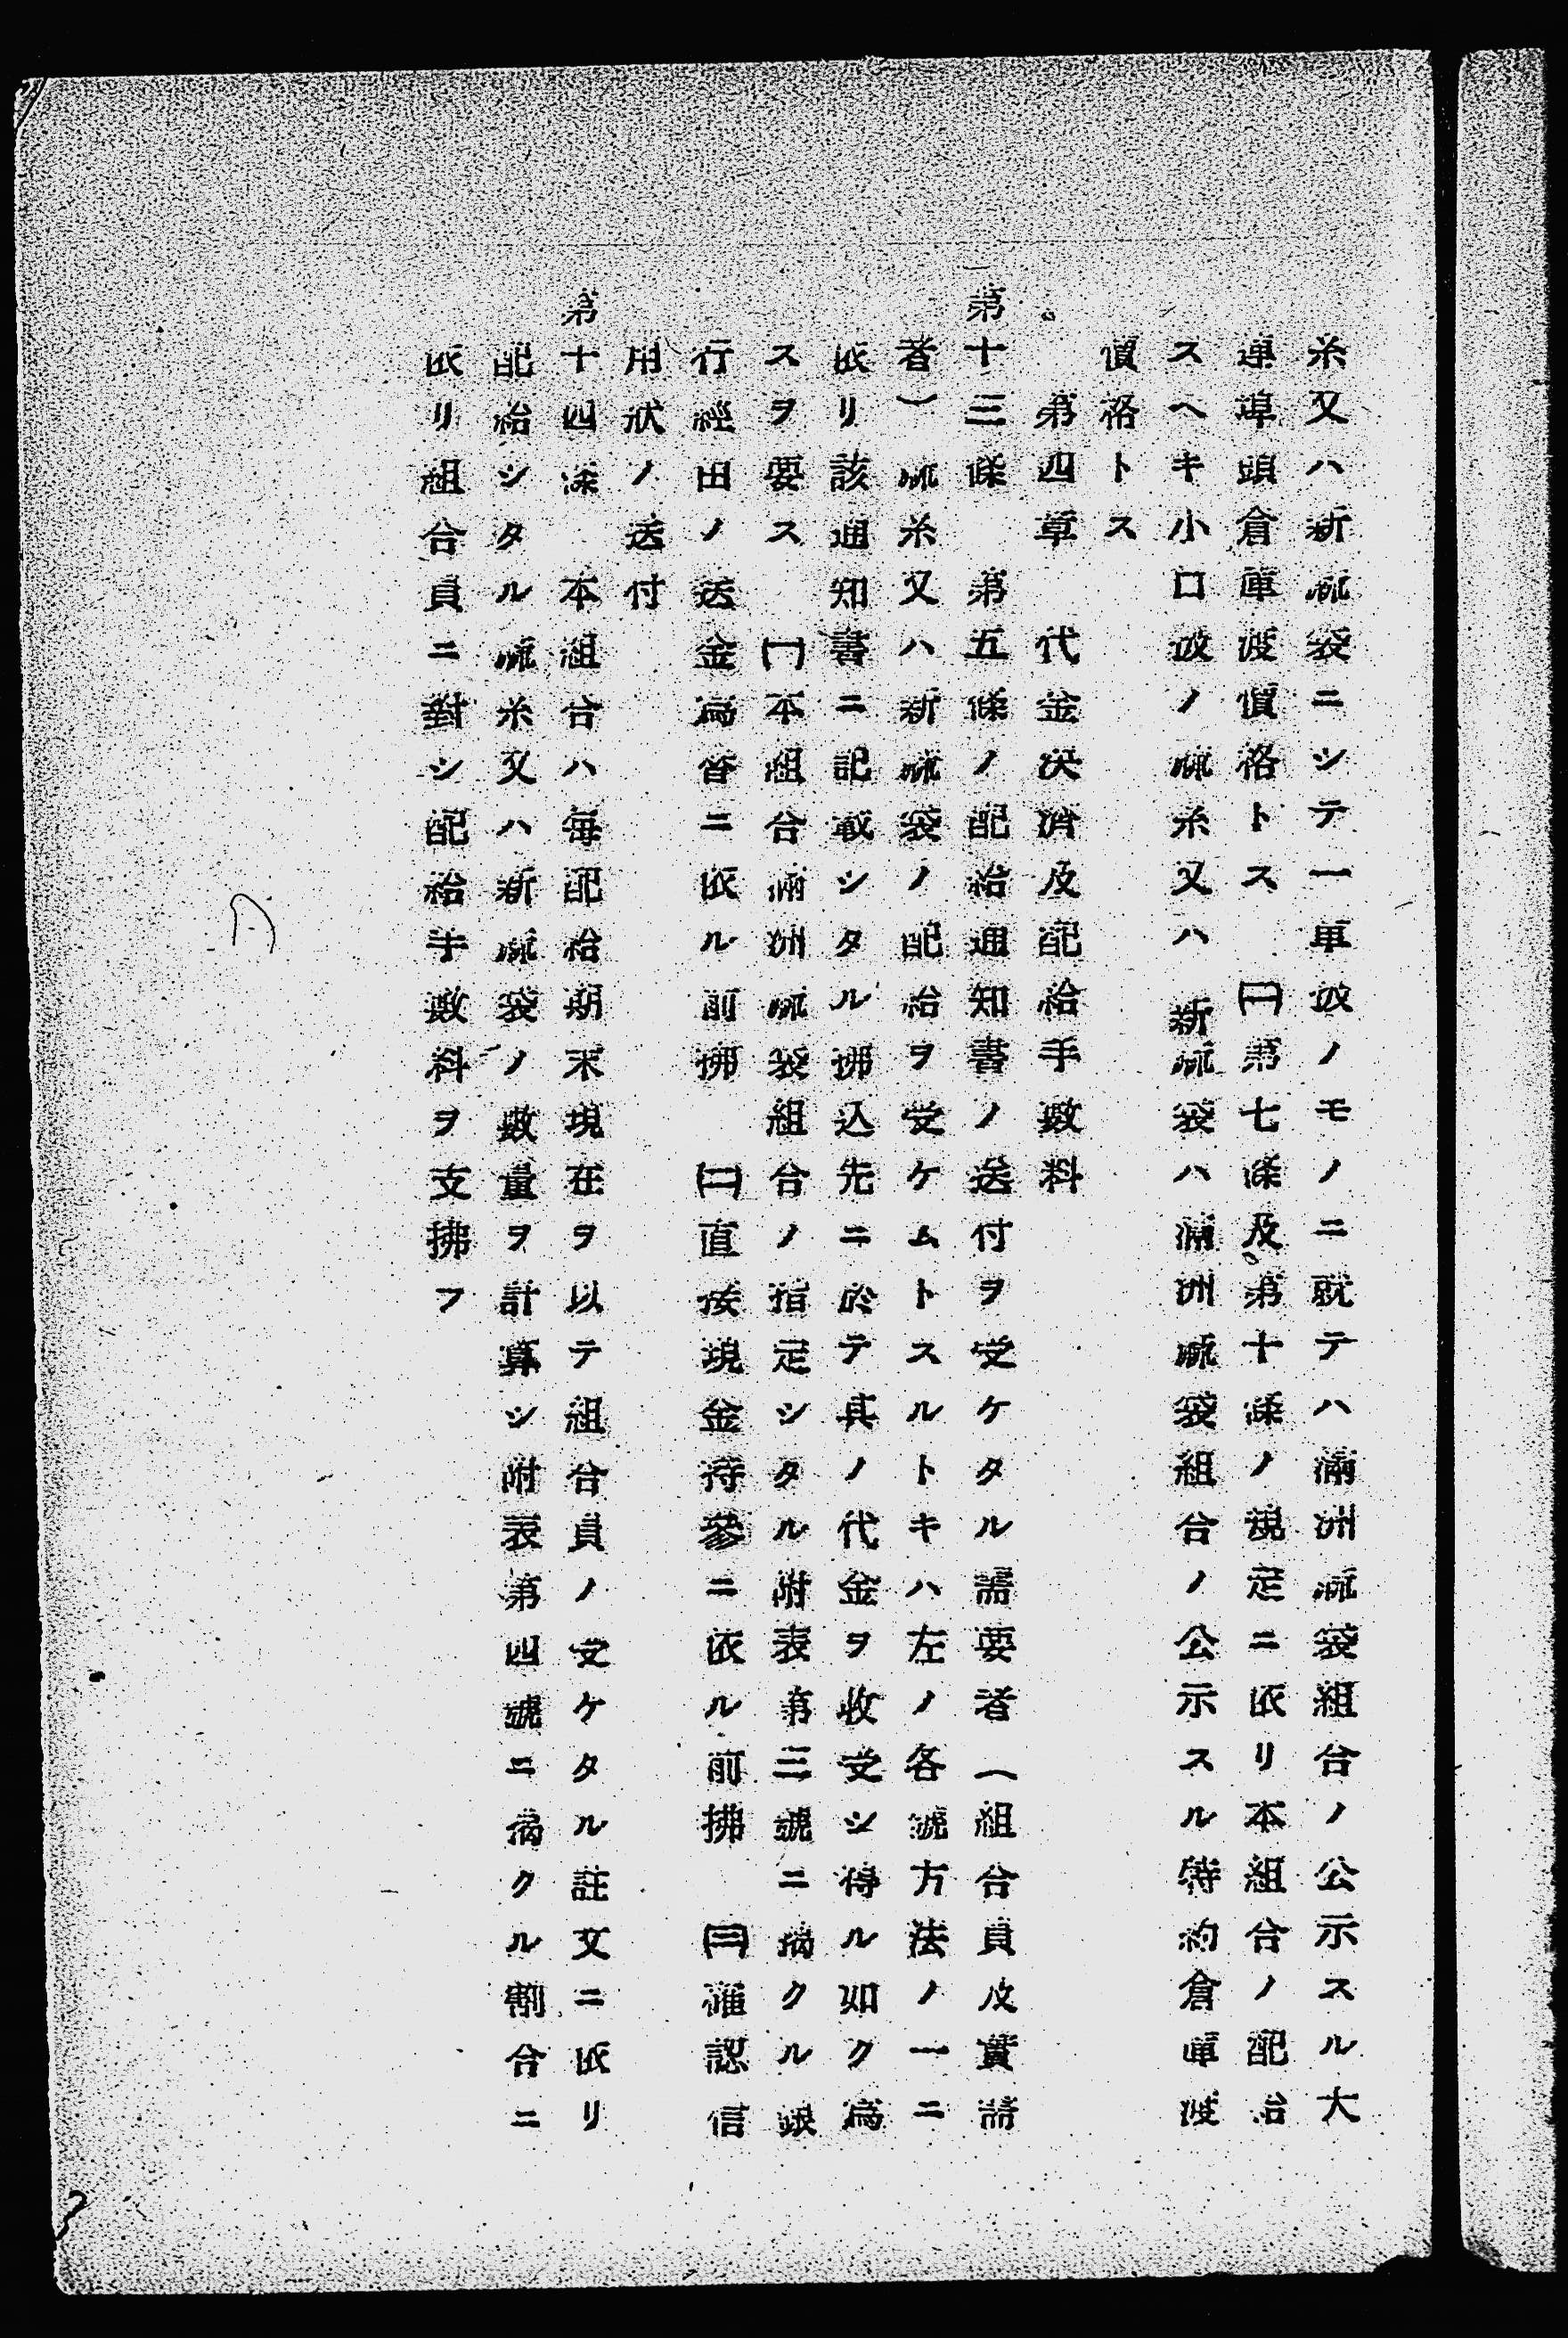 糸又ハ新麻袋ニシテ一車扱ノモノニ就テハ滿洲麻袋組合ノ公示スル大
連埠頭倉庫渡價格トス　㈡第七條及第十條ノ規定ニ依リ本組合ノ配給
スヘキ小口扱ノ麻糸又ハ新麻袋ハ滿洲麻袋組合ノ公示スル特約倉庫渡
價格トス
第四章　代金決濟及配給手數料
第十三條　第五條ノ配給通知書ノ送付ヲ受ケタル需要者（組合員及實需
者）麻糸又ハ新麻袋ノ配給ヲ受ケムトスルトキハ左ノ各號方法ノ一ニ
依リ該通知書ニ記載シタル拂込先ニ於テ其ノ代金ヲ收受シ得ル如ク爲
スヲ要ス　㈠本組合滿洲麻袋組合ノ指定シタル附表第三號ニ揭クル銀
行經由ノ送金爲替ニ依ル前拂　㈡直接現金持參ニ依ル前拂　㈢確認信
用狀ノ送付
第十四條　本組合ハ每配給期末現在ヲ以テ組合員ノ受ケタル註文ニ依リ
配給シタル麻糸又ハ新麻袋ノ數量ヲ計算シ附表第四號ニ揭クル割合ニ
依リ組合員ニ對シ配給手數料ヲ支拂フ